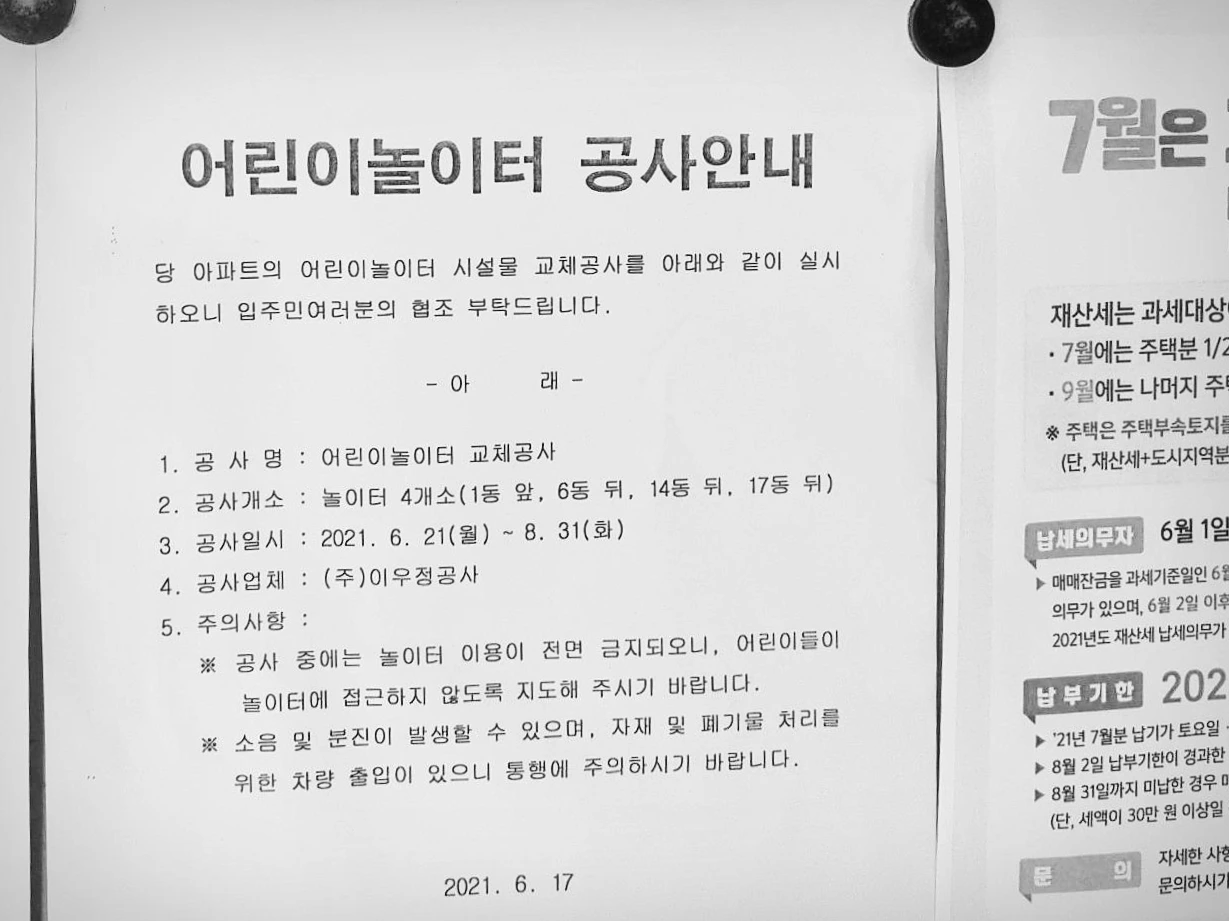 어린이놀이터 공사안내
당 아파트의 어린이놀이터 시설물 교체공사를 아래와 같이 실시
하오니 입주민여러분의 협조 부탁드립니다.
- 아 래 -
1. 공 사 명 : 어린이놀이터 교체공사
2. 공사개소 : 놀이터 4개소(1동 앞, 6동 뒤, 14동 뒤, 17동 뒤)
3. 공사일시 : 2021. 6. 21(월) ~ 8. 31(화)
4. 공사업체 : (주)이우정공사
5. 주의사항 :
※ 공사 중에는 놀이터 이용이 전면 금지되오니, 어린이들이
놀이터에 접근하지 않도록 지도해 주시기 바랍니다.
※ 소음 및 분진이 발생할 수 있으며, 자재 및 폐기물 처리를
위한 차량 출입이 있으니 통행에 주의하시기 바랍니다.
2021. 6. 17
7월은
재산세는 과세대상
· 7월에는 주택분 1/2
· 9월에는 나머지
※ 주택은 주택부속토지를
(단, 재산세+도시지역분
납세의무자 6월 1일
▶ 매매잔금을 과세기준일인 6월
의무가 있으며, 6월 2일 이후
2021년도 재산세 납세의무가
납부기한 202
▶ '21년 7월분 납기가 토요일
▶ 8월 2일 납부기한이 경과한
▶ 8월 31일까지 미납한 경우
(단, 세액이 30만 원 이상일
문 의 자세한
문의하시기